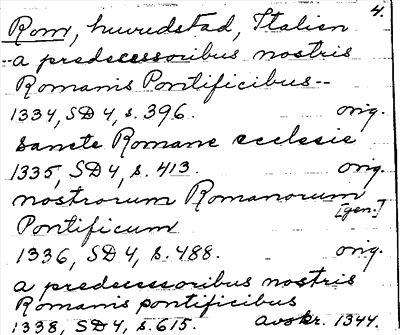 4.
Rom, huvudstad, Italien
--a predecessoribus nostris
Romanis Pontificibus--
1334, SD 4, s. 396. orig.
Sancte Romane ecclesie
1335, SD 4, s. 413. orig.
nostrorum Romanorum
Pontificum [gen.]
1336, SD 4, s. 488. orig.
a predecessoribus nostris
Romanis pontificibus
1338, SD 4, s. 615. avskr. 1344.